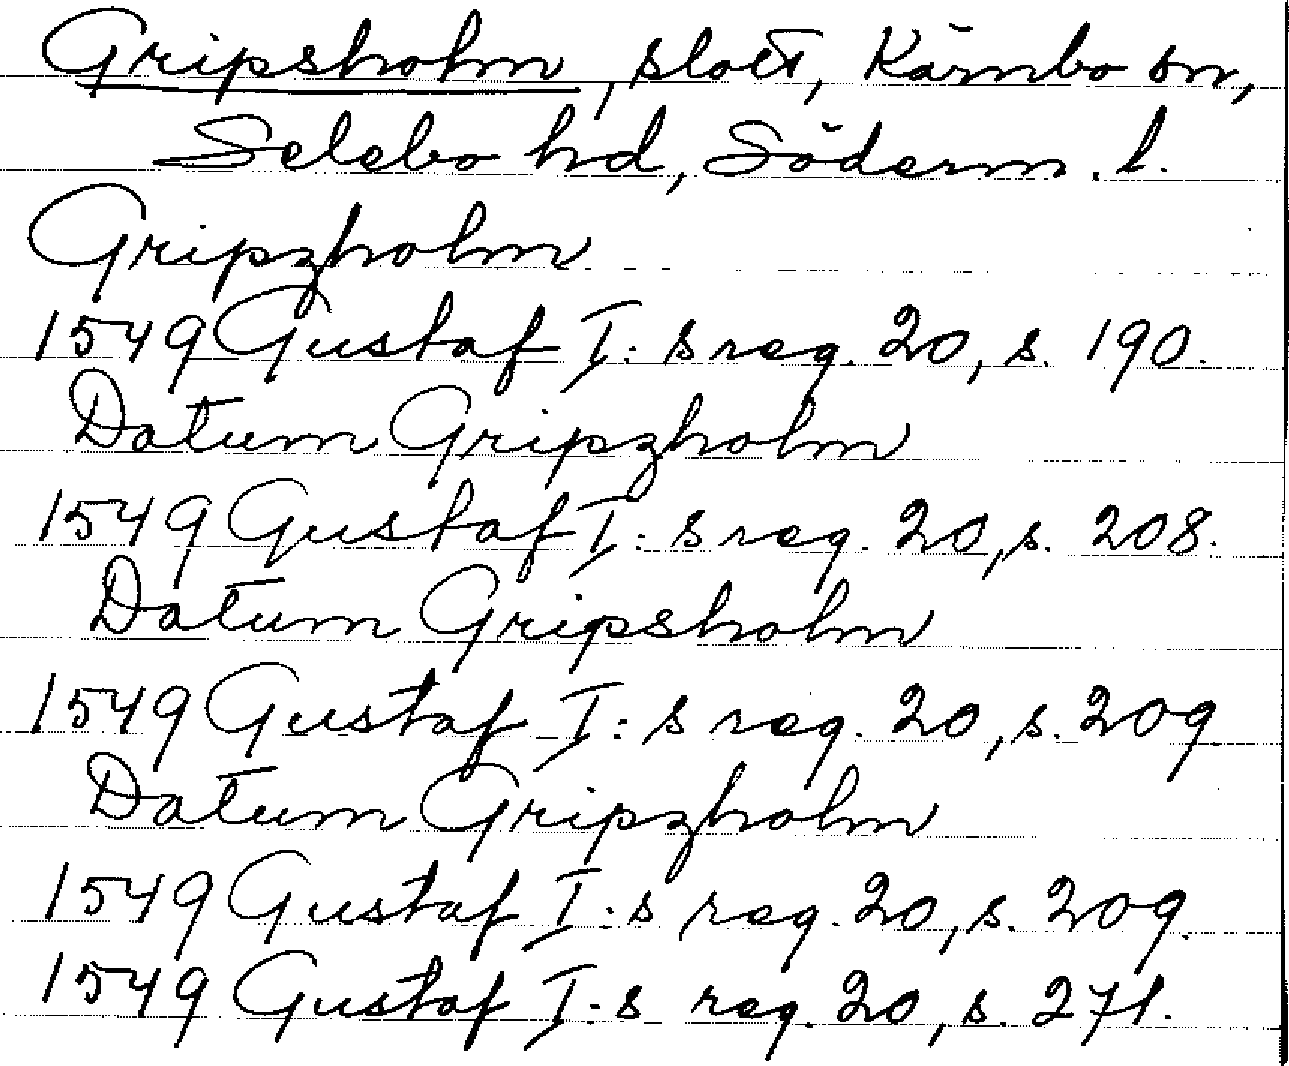 Gripsholm, slott, Kärnbo sn,
Selebo hd, Söderm. l.
Gripzholm
1549 Gustaf I:s reg. 20, s. 190.
Datum Gripzholm
1549 Gustaf I:s reg. 20, s. 208.
Datum Gripsholm
1549 Gustaf I:s reg. 20, s. 209
Datum Gripzholm
1549 Gustaf I:s reg. 20, s. 209.
1549 Gustaf I:s reg. 20, s. 271.